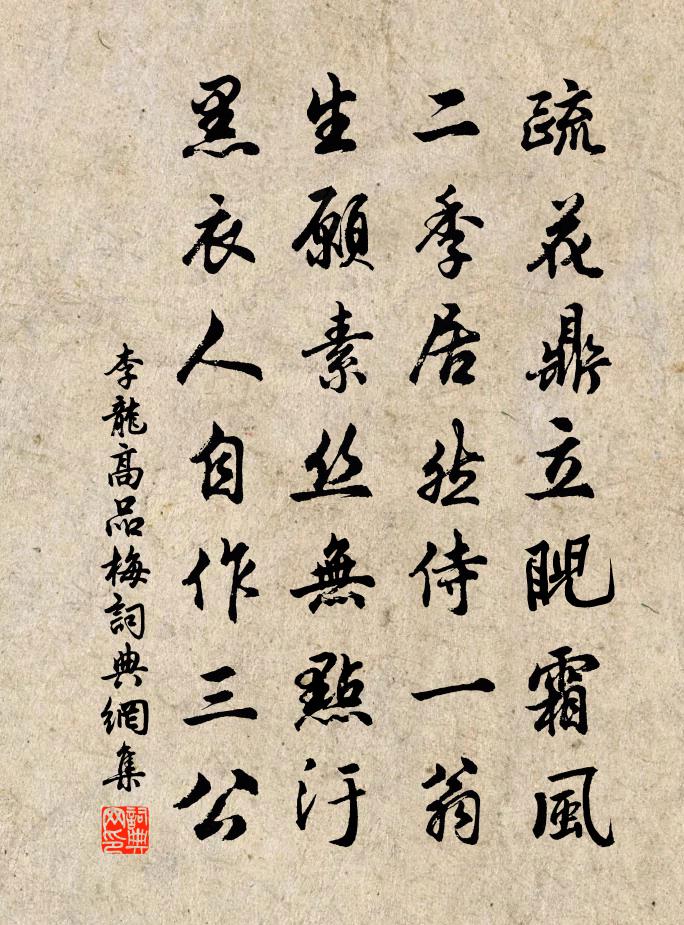 疏花鼎立睨霜風
二季居然侍一翁
生願素丝無點汙
黑衣人自作三公
李龍高品梅詞典網集
詞典网印